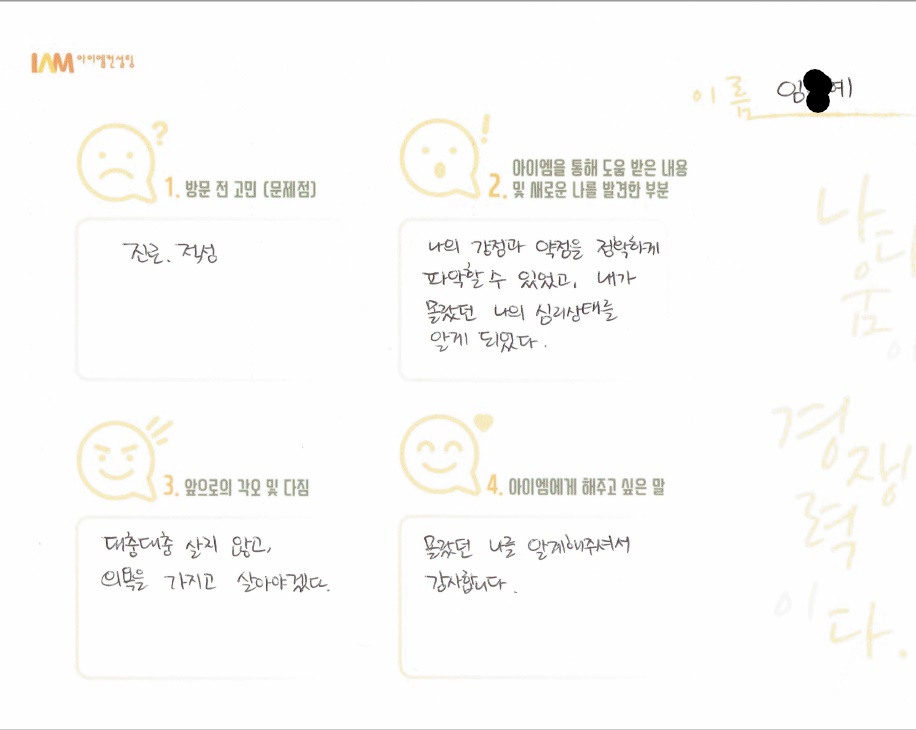 IAM 아이엠컨설팅
이름 임 예
1. 방문 전 고민 (문제점)
진로. 적성
2. 아이엠을 통해 도움 받은 내용
및 새로운 나를 발견한 부분
나의 강점과 약점을 정확하게
파악할 수 있었고, 내가
몰랐던 나의 심리상태를
알게 되었다.
3. 앞으로의 각오 및 다짐
대충대충 살지 않고,
의욕을 가지고 살아야겠다.
4. 아이엠에게 해주고 싶은 말
몰랐던 나를 알게해주셔서
감사합니다.
나다
움이
경쟁
력
이다.